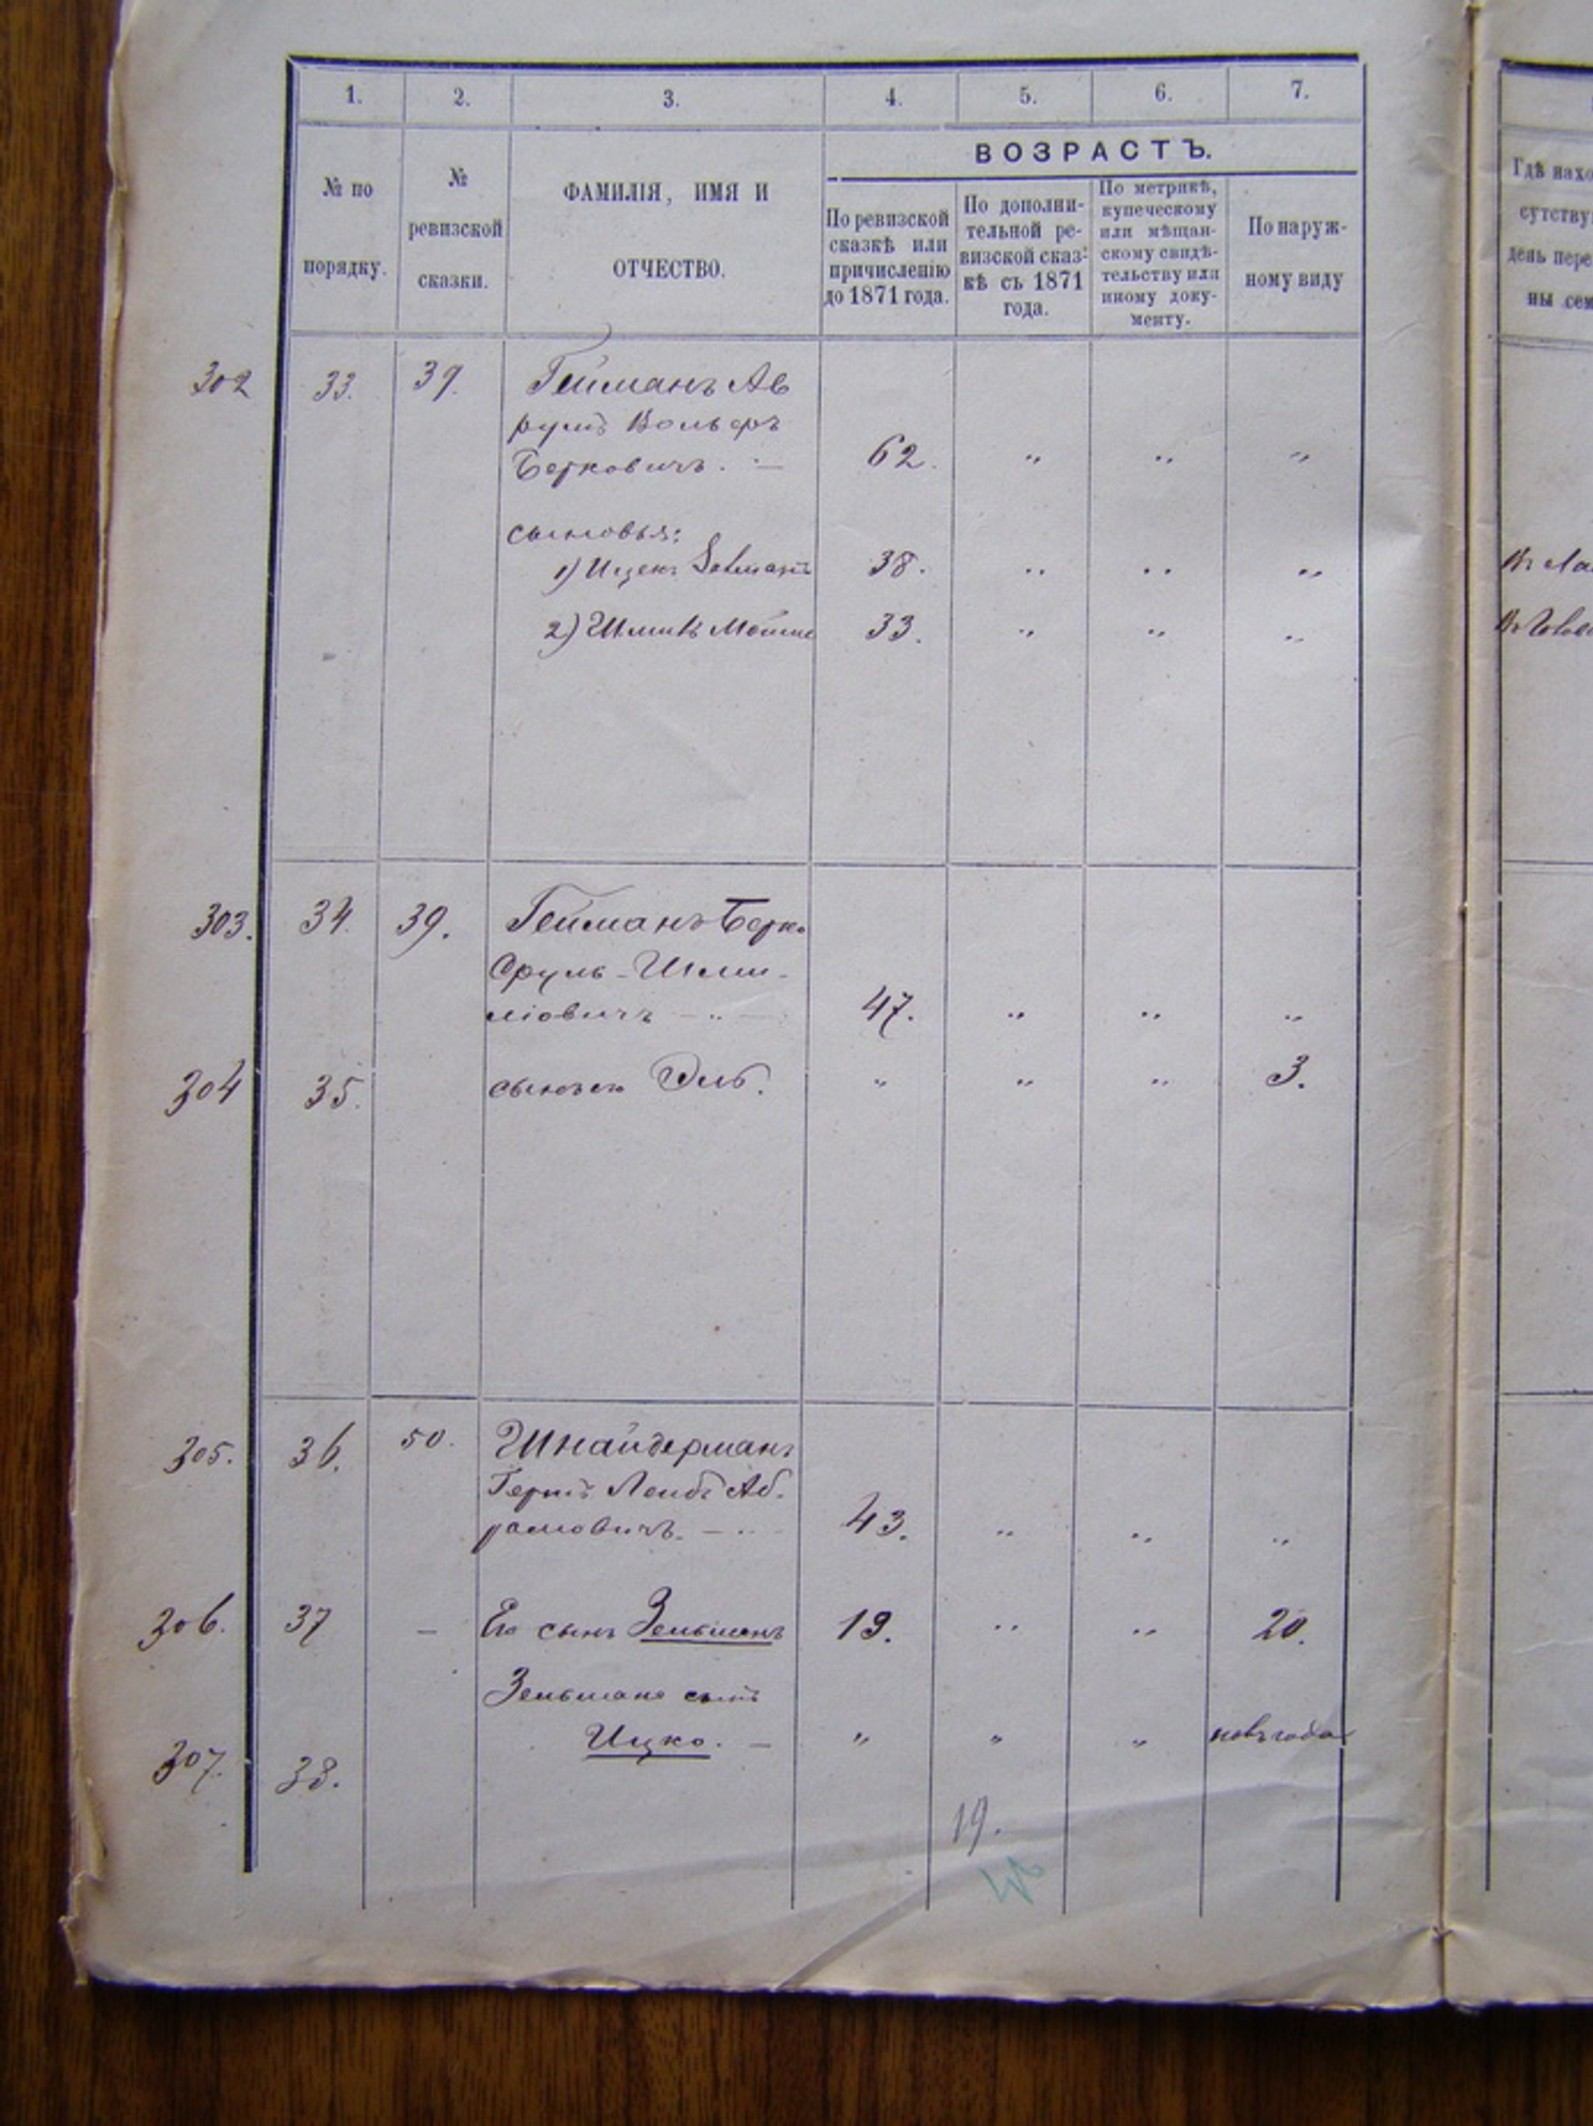 1. 2. 3. 4. 5. 6. 7.
№ по порядку.
№ ревизской сказки.
ФАМИЛІЯ, ИМЯ И
ОТЧЕСТВО.
ВОЗРАСТЪ.
По ревизской
сказкѣ или
причисленію
до 1871 года.
По дополни-
тельной ре-
визской сказ-
кѣ съ 1871
года.
По метрикѣ,
купеческому
или мѣщан-
скому свидѣ-
тельству или
иному доку-
менту.
По наруж-
ному виду
Гдѣ нахо
сутству
день пере
ны сем
302 33. 39. Гейманъ Ав
румъ Вольфъ
Берковичъ. - 62. " " "
сыновья:
1) Ицекъ Залманъ 38. " " "
2) Шмиль 33. " " "
303. 34. 39. Гейманъ Берко
Сруль - Шми-
ліовичъ - " - 47. " " "
304 35. сынъ его " " " 3.
305. 36. 50. Шнайдерманъ
Гершъ Лейбъ Аб-
рамовичъ. - " - 43. " " "
306. 37 - Его сынъ Зельманъ 19. " " 20.
Зельмана сынъ
307. 38. Ицко. - " " " полъ года
19.